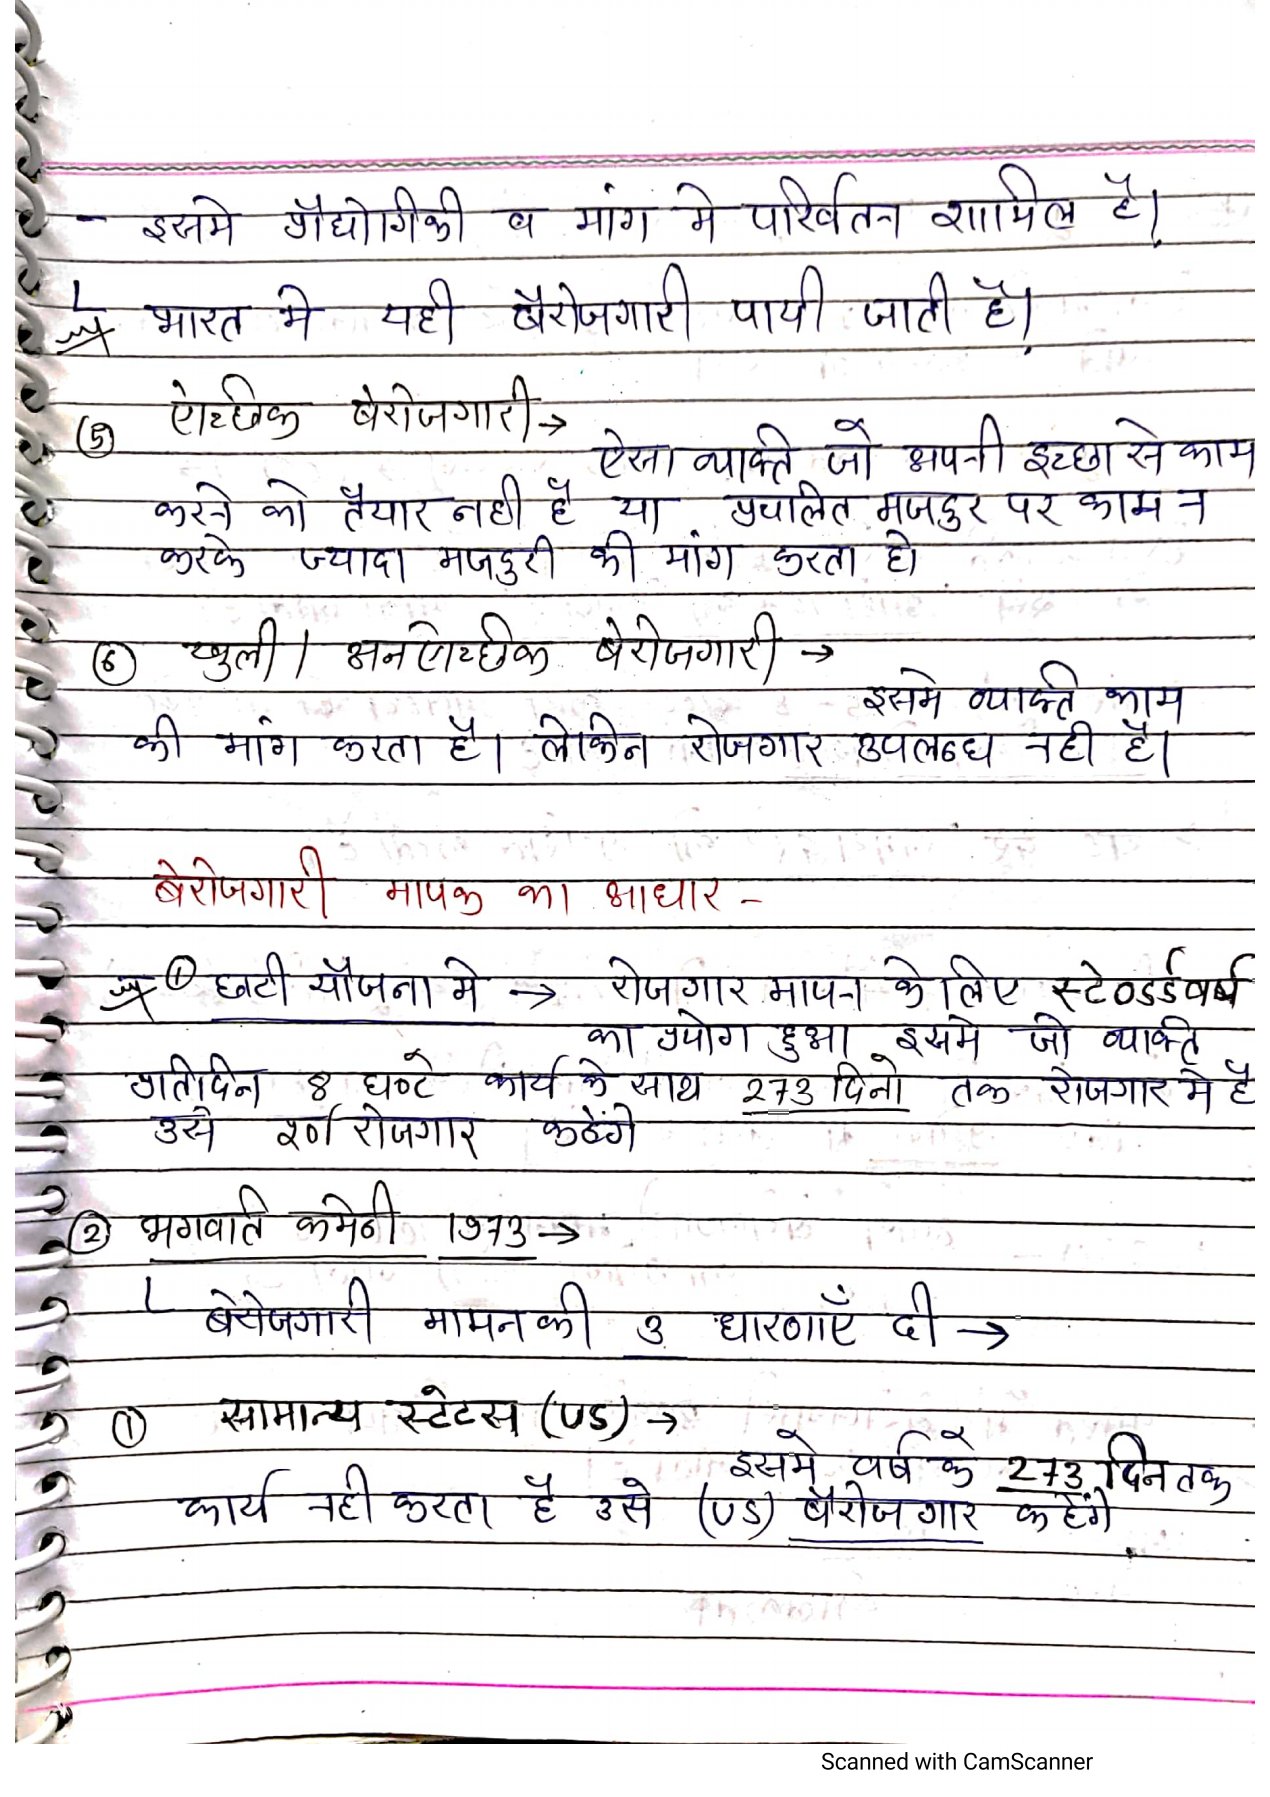 - इसमे प्रौद्योगिकी व मांग मे परिर्वतन शामिल है।
भारत मे यही बैरोजगारी पायी जाती है।
(5) ऐच्छिक बेरोजगारी →
ऐसा व्यक्ति जो अपनी इच्छा से काम
करने को तैयार नही है या प्रचलित मजदुर पर काम न
करके ज्यादा मजदुरी की मांग करता हो
(6) खुली / अनऐच्छीक बेरोजगारी →
इसमे व्यक्ति काम
की मांग करता है। लेकिन रोजगार उपलब्ध नही है।
बेरोजगारी मापक का आधार -
(1) छटी यौजना मे → रोजगार मापन के लिए स्टेण्डर्ड वर्ष
का प्रयोग हुआ इसमे जो व्यक्ति
प्रतिदिन 8 घण्टे कार्य के साथ 273 दिनो तक रोजगार मे है
उसे रोजगार कहेंगे
(2) भगवति कमेटी 1973 →
बेरोजगारी मामन की 3 धारणाएँ दी →
(1) सामान्य स्टेटस (US) →
इसमे वर्ष के 273 दिन तक
कार्य नही करता है उसे (US) बैरोजगार कहेंगे
Scanned with CamScanner